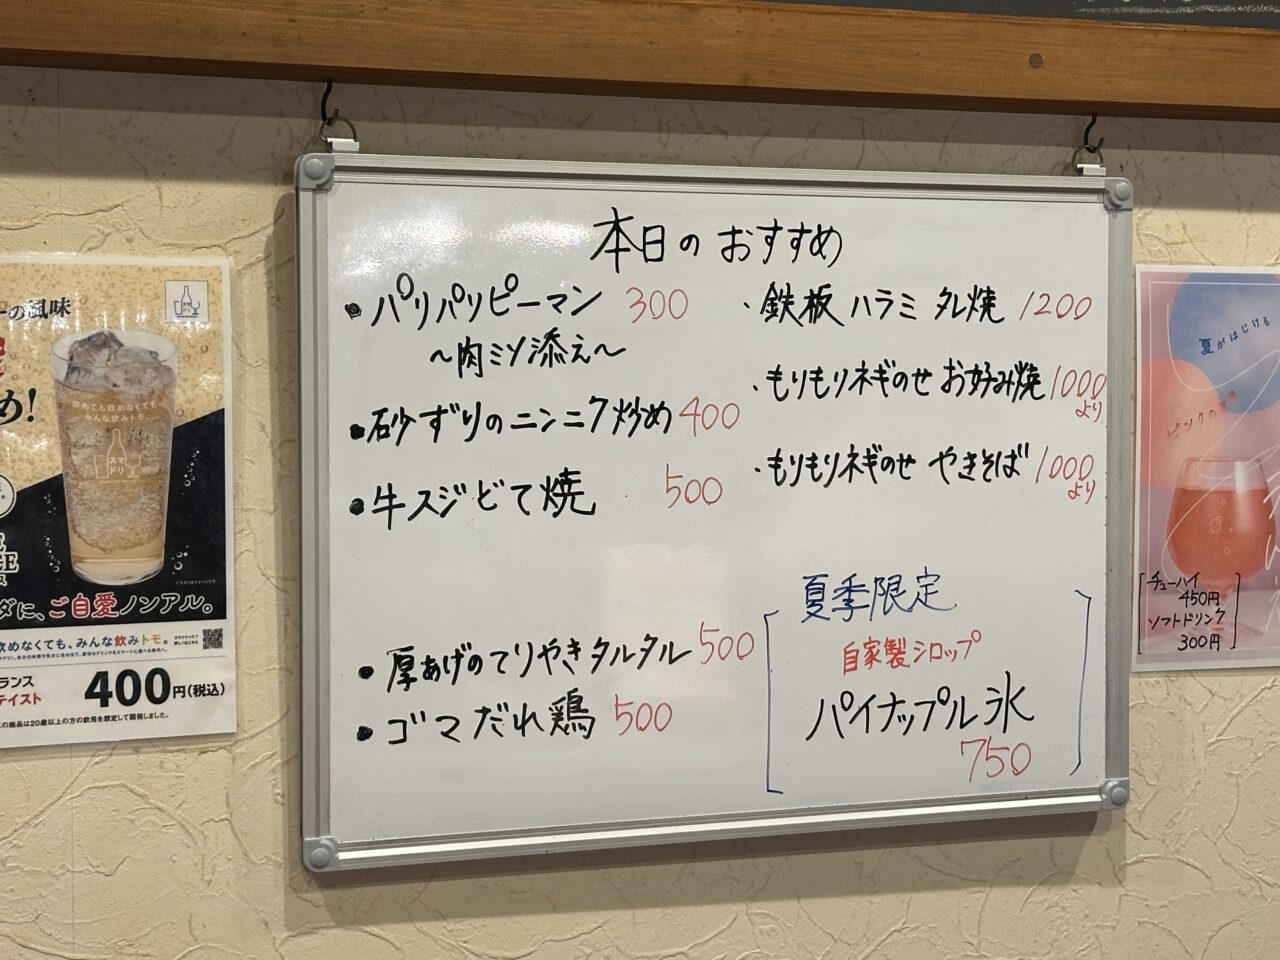 本日のおすすめ
・パリパリピーマン 300
～肉ミソ添え～
・砂ずりのニンニク炒め 400
・牛スジどて焼 500
・厚あげのてりやきタルタル 500
・ゴマだれ鶏 500
・鉄板ハラミ タレ焼 1200
・もりもりネギのせ お好み焼 1000
より
・もりもりネギのせ やきそば 1000
より
夏季限定
自家製シロップ
パイナップル氷
750
の風味
め!
飲めても飲めなくても、
みんな飲みトモ。
スマドリ
イラストはイメージです
ダに、ご自愛ノンアル。
飲めなくても、みんな飲みトモ。
ランス
テイスト
400円(税込)
の商品は20歳以上の方の飲用を想定して開発しました。
夏がはじける
ピンクの
チューハイ
450円
ソフトドリンク
300円